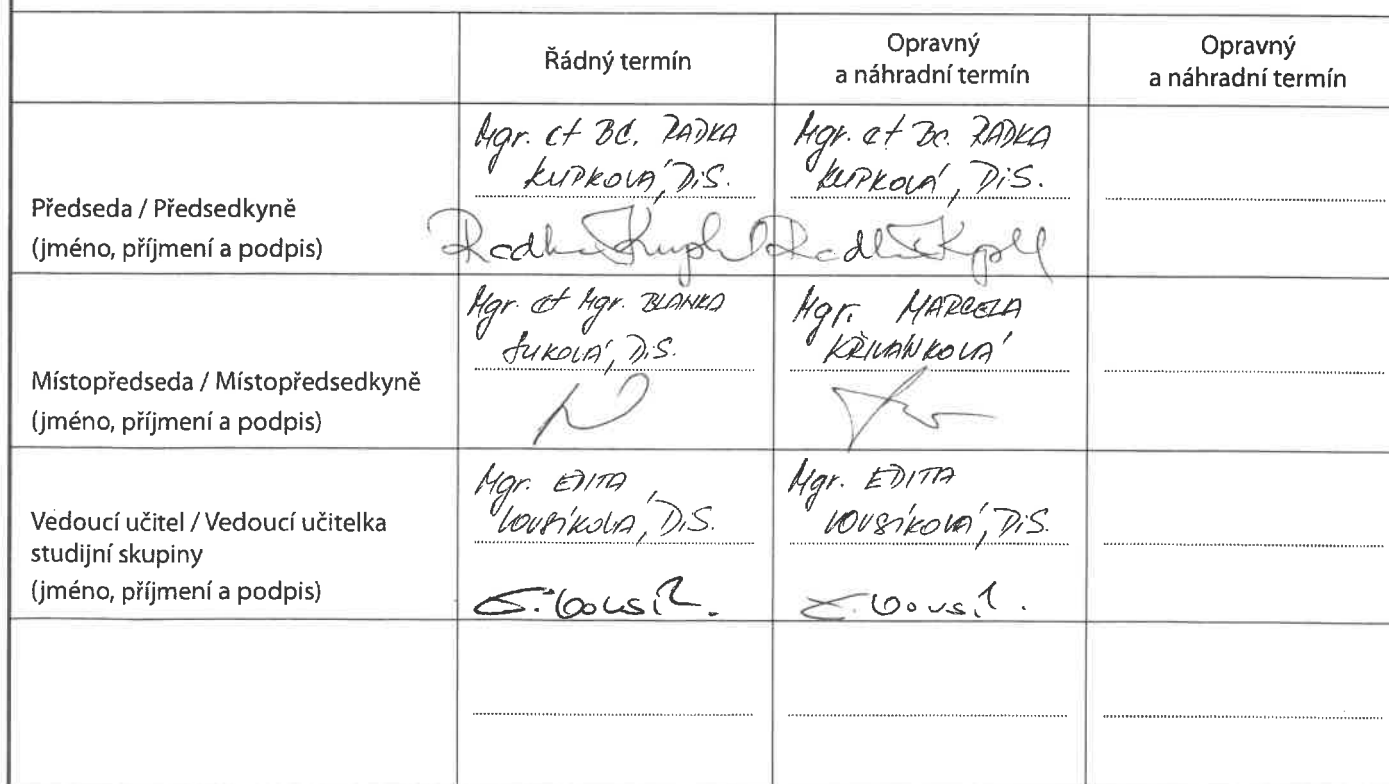 Řádný termín
Opravný
a náhradní termín
Opravný
a náhradní termín
Předseda / Předsedkyně
(jméno, příjmení a podpis)
Mgr. et BC. RADKA
KUPKOVÁ, DiS.
Mgr. et Bc. RADKA
KUPKOVÁ, DiS.
Místopředseda / Místopředsedkyně
(jméno, příjmení a podpis)
Mgr. et Mgr. BLANKA
DiS.
Mgr. MARCELA
KŘIVÁNKOVÁ
Vedoucí učitel / Vedoucí učitelka
studijní skupiny
(jméno, příjmení a podpis)
Mgr. EDITA
VOUSÍKOVÁ, DiS.
Mgr. EDITA
VOUSÍKOVÁ, DiS.